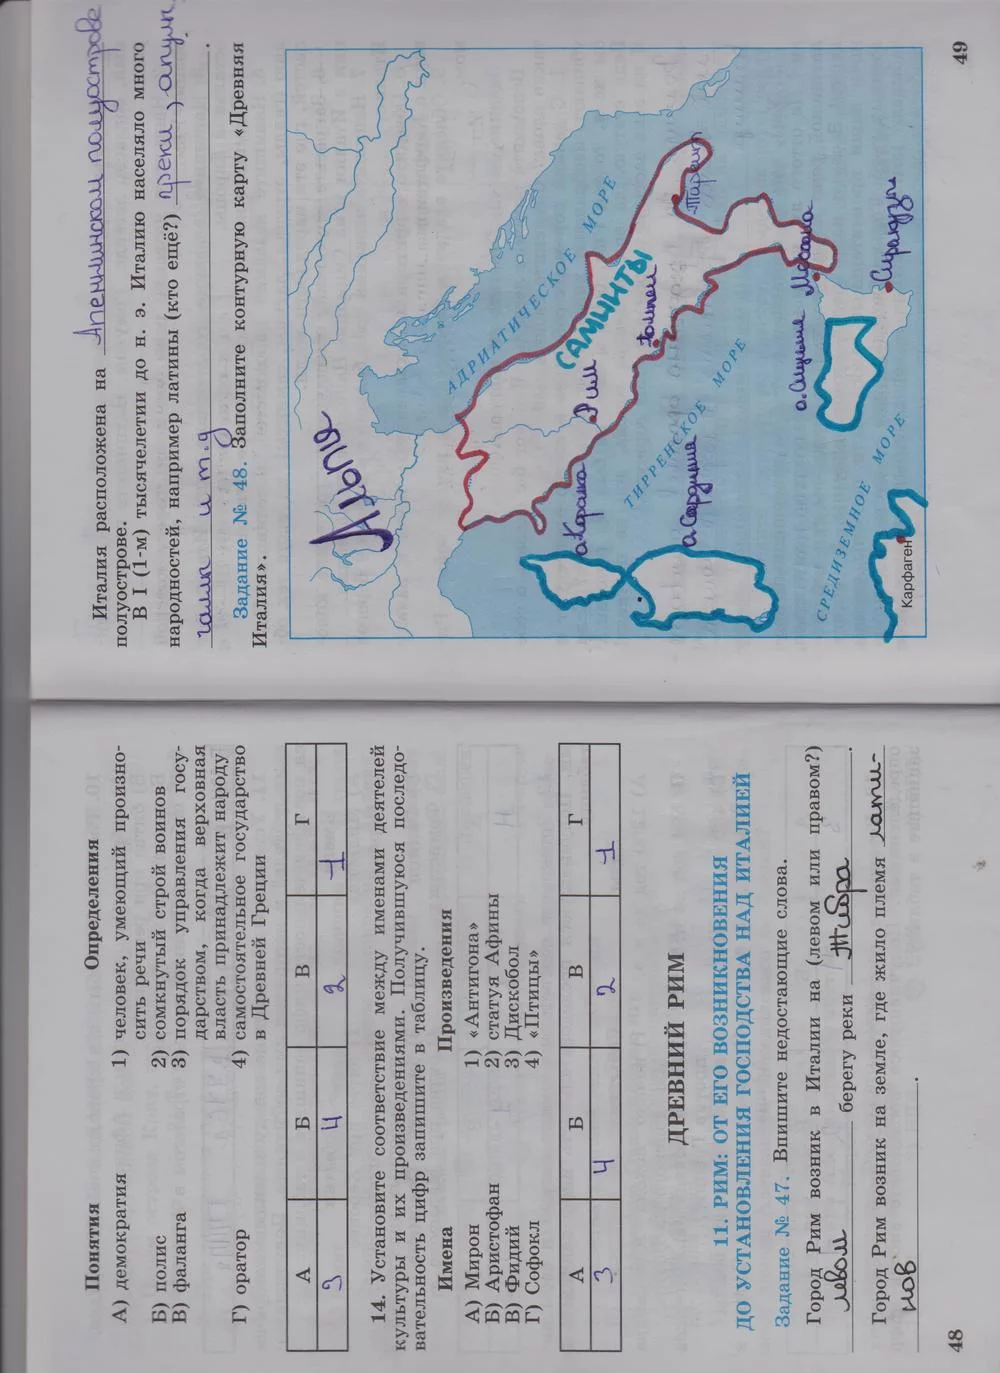 Понятия
Определения
А) демократия
1) человек, умеющий произно-
сить речи
Б) полис
2) сомкнутый строй воинов
В) фаланга
3) порядок управления госу-
дарством, когда верховная
власть принадлежит народу
Г) оратор
4) самостоятельное государство
в Древней Греции
А Б В Г
3 4 2 1
14. Установите соответствие между именами деятелей
культуры и их произведениями. Получившуюся последо-
вательность цифр запишите в таблицу.
Имена
Произведения
А) Мирон
1) «Антигона»
Б) Аристофан
2) статуя Афины
В) Фидий
3) Дискобол
Г) Софокл
4) «Птицы»
А Б В Г
3 4 2 1
ДРЕВНИЙ РИМ
11. РИМ: ОТ ЕГО ВОЗНИКНОВЕНИЯ
ДО УСТАНОВЛЕНИЯ ГОСПОДСТВА НАД ИТАЛИЕЙ
Задание № 47. Впишите недостающие слова.
Город Рим возник в Италии на (левом или правом?)
левом берегу реки Тибра.
Город Рим возник на земле, где жило племя лати-
нов.
48
Италия расположена на Апеннинском полуострове
полуострове.
В I (1-м) тысячелетии до н. э. Италию населяло много
народностей, например латины (кто ещё?) греки, апулы,
галлы и т.д.
Задание № 48. Заполните контурную карту «Древняя
Италия».
Альпы
АДРИАТИЧЕСКОЕ МОРЕ
САМНИТЫ
Тарент
Рим
о.Корсика
ТИРРЕНСКОЕ МОРЕ
о.Сардиния
о.Сицилия
Мессана
Сиракузы
СРЕДИЗЕМНОЕ МОРЕ
Карфаген
49